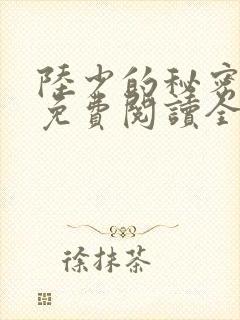 陸少的秘密
免費閱讀全
徐抹茶